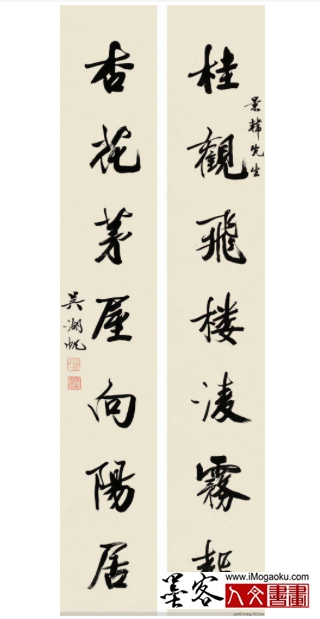 桂觀飛楼凌霧起
景韓先生
杏花茅屋向陽居
吳湖帆
墨客
www.iMogaoku.com
人文書畫